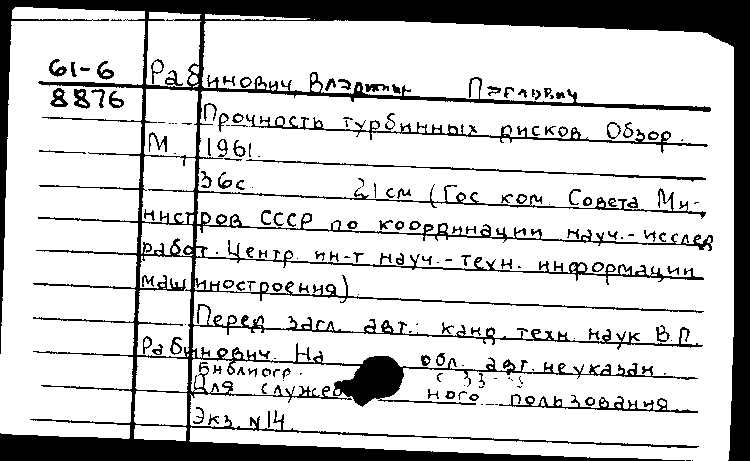 61-6 Рабинович, Владимир Павлович
8876
Прочность турбинных дисков. Обзор.
М., 1961.
36с. 21см (Гос ком. Совета Ми-
нистров СССР по координации науч.-исслед
работ. Центр ин-т науч.-техн. информации
машиностроения)
Перед загл. авт.: канд. техн. наук В.П.
Рабинович. На обл. авт. не указан.
Библиогр.
Для служебного пользования
Экз. №14